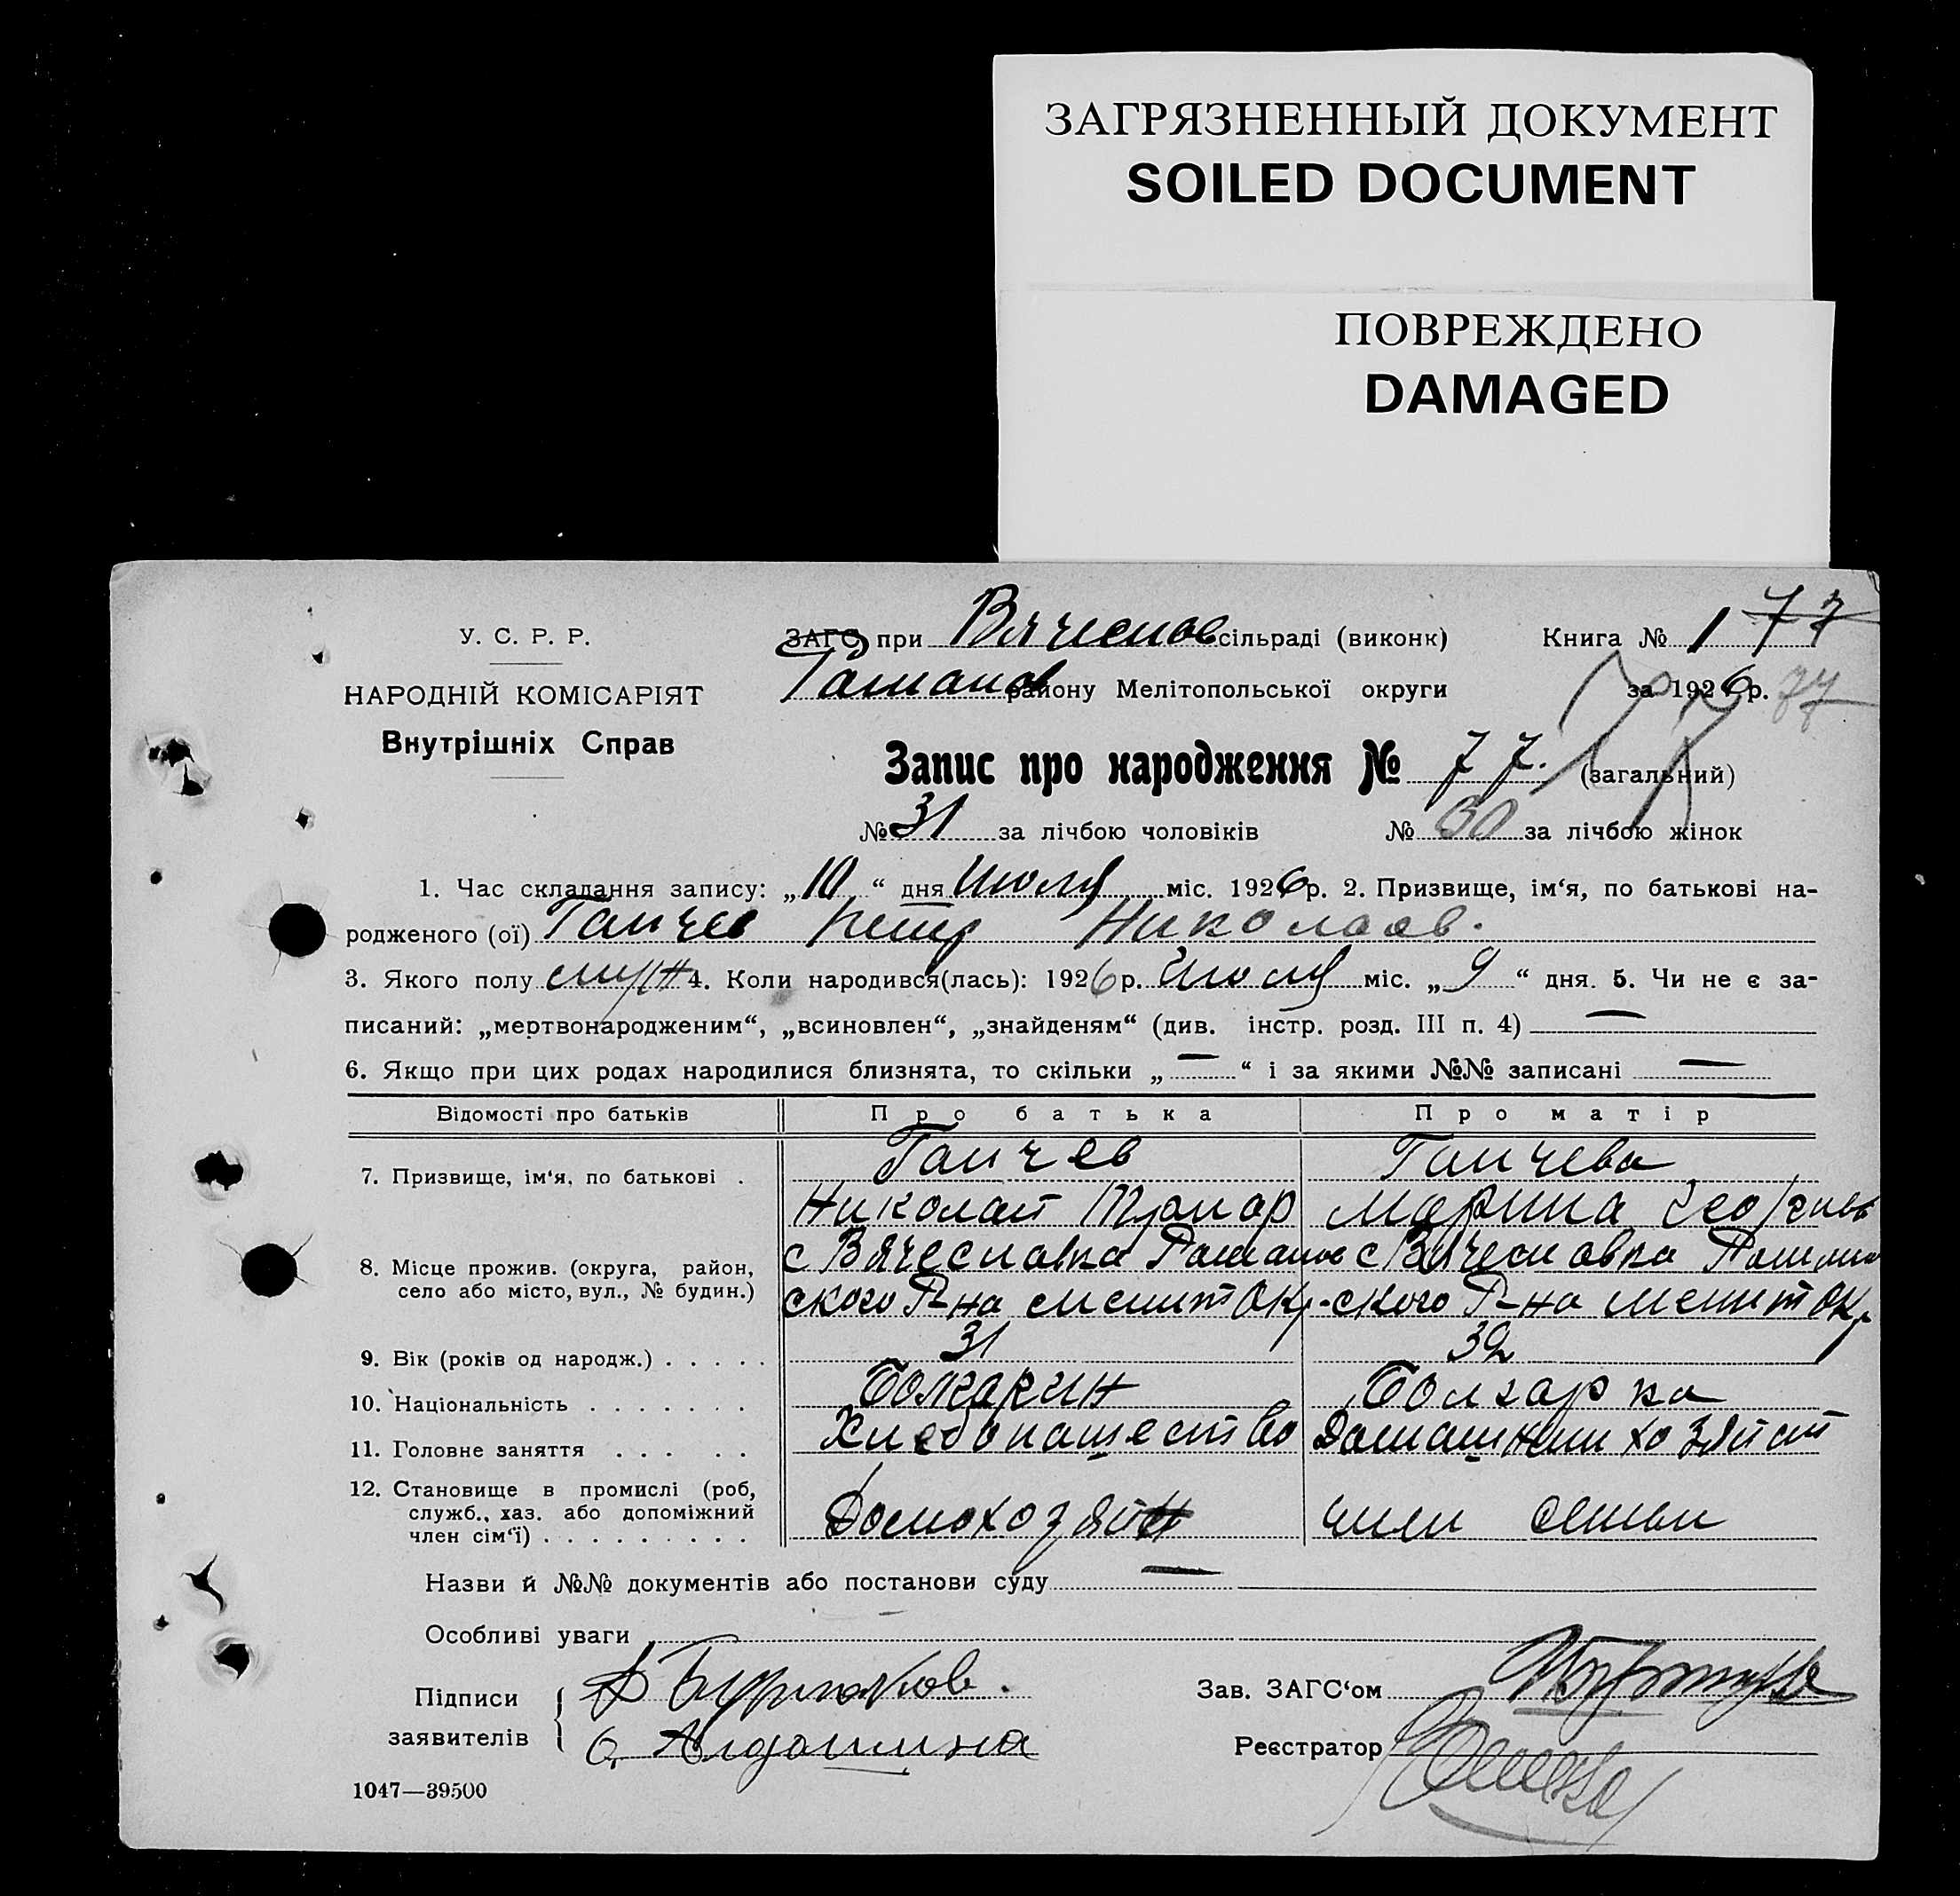 ЗАГРЯЗНЕННЫЙ ДОКУМЕНТ
SOILED DOCUMENT
ПОВРЕЖДЕНО
DAMAGED
У. С. Р. Р.
НАРОДНІЙ КОМІСАРІЯТ
Внутрішніх Справ
ЗАГС при Вячеслов сільраді (виконк) Книга № 1 77
району Мелітопольської округи за 1926 р. 77
Запис про народження № 77. (загальний)
№ 31 за лічбою чоловіків № 30 за лічбою жінок
1. Час складання запису: „10“ дня Июля міс. 1926 р. 2. Призвище, ім‘я, по батькові на-
родженого (ої) Ганчев Петр Николаев.
3. Якого полу муж 4. Коли народився(лась): 1926 р. Июля міс. „9“ дня. 5. Чи не є за-
писаний: „мертвонародженим“, „всиновлен“, „знайденям“ (див. інстр. розд. III п. 4) —
6. Якщо при цих родах народилися близнята, то скільки „—“ і за якими №№ записані —
Відомості про батьків Про батька Про матір
7. Призвище, ім‘я, по батькові . Ганчев Ганчева
Николай Марина
8. Місце прожив. (округа, район, с Вячеславка с Вячеславка
село або місто, вул., № будин.) ского Р-на мелит Окр. ского Р-на мелит Окр
9. Вік (років од народж.) . . . . . 31 32
10. Національність . . . . . . . Болгарин Болгарка
11. Головне заняття . . . . . Хлебопашество
12. Становище в промислі (роб,
служб., хаз. або допоміжний Домохозяин член семьи
член сім‘ї) . . . . . . . . .
Назви й №№ документів або постанови суду —
Особливі уваги
Підписи Зав. ЗАГС‘ом
заявителів Реєстратор
1047—39500